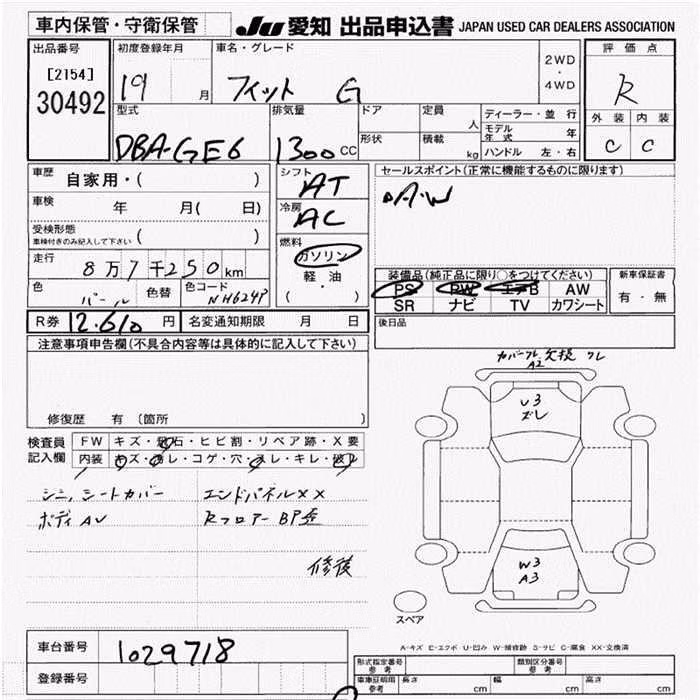 車内保管・守衛保管
JU 愛知 出品申込書 JAPAN USED CAR DEALERS ASSOCIATION
出品番号
[2154]
30492
初度登録年月
19 月
車名・グレード
フィット G
2WD
・
4WD
評価点
R
外装 内装
C C
型式
DBA-GE6
排気量
1300 CC
ドア
形状
定員
人
積載
kg
ディーラー・並行
モデル年式 年
ハンドル 左・右
車歴
自家用・( )
車検
年 月( 日)
受検形態
車検付きのみ記入して下さい ( )
走行
8万7千250km
色
パール
色替
色コード
NH624P
シフト
AT
冷房
AC
燃料
ガソリン
軽油
( ・ )
セールスポイント(正常に機能するものに限ります)
AW
装備品(純正品に限り○をつけてください)
PS PW エアB AW
SR ナビ TV カワシート
新車保証書
有・無
後日品
R券 12.610 円
名変通知期限 月 日
注意事項申告欄(不具合内容等は具体的に記入して下さい)
修復歴 有 〔箇所 〕
検査員
記入欄
FW キズ・飛石・ヒビ割・リペア跡・X要
内装 キズ・ヨゴレ・コゲ・穴・スレ・キレ・破レ
シミ,シートカバー
ボディ AU
エンドパネルXX
Rフロアー BP歪
修後
カバーフレ 交換 フレ
A2
U3
ズレ
W3
A3
スペア
A-キズ E-エクボ U-凹み W-補修跡 S-サビ C-腐食 XX-交換済
車台番号
1029718
登録番号
型式指定番号
参考
類別区分番号
参考
車庫証明用
参考
長さ cm
幅 cm
高さ cm